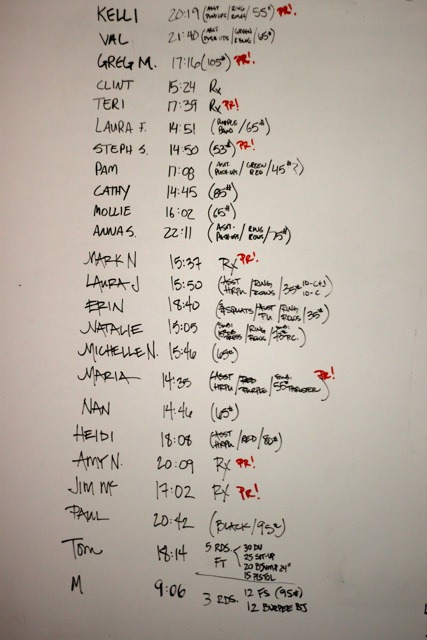 KELLI 20:19 (ASST PUSHUPS/RING ROWS/55#) PR!
VAL 21:40 (ASST PUSH UPS/GREEN /65#)
GREG M. 17:16 (105#) PR!
CLINT 15:24 Rx
TERI 17:39 Rx PR!
LAURA F. 14:51 (PURPLE BAND/65#)
STEPH S. 14:50 (53#) PR!
PAM 17:08 (ASST. PUSH-UP/GREEN RED/45#?)
CATHY 14:45 (85#)
MOLLIE 16:02 (65#)
ANNA S. 22:11 (ASST. PUSHUPS/RING ROWS/75#)
MARK N 15:37 RX PR!
LAURA J 15:50 (ASST HRPU/RING ROWS/35# 10-C+J 10-C)
ERIN 18:40 (SQUATS/ASST PU/RING ROWS/35#)
NATALIE 15:05 (SUB: PRESS/RING ROWS/SUB:
MICHELLE N. 15:46 (65#)
MARIA 14:35 (ASST HRPU/RED PURPLE/SUB: 55# THRUSTER) PR!
NAN 14:46 (65#)
HEIDI 18:08 (ASST HRPU/RED/80#)
AMY N. 20:09 RX PR!
JIM MC 17:02 RX PR!
PAUL 20:42 (BLACK/95#)
TOM 18:14 5 RDS. FT 30 DU
25 SIT-UP
20 BJUMP 24"
15 PISTOL
M 9:06 3 RDS. 12 FS (95#)
12 BURPEE BJ